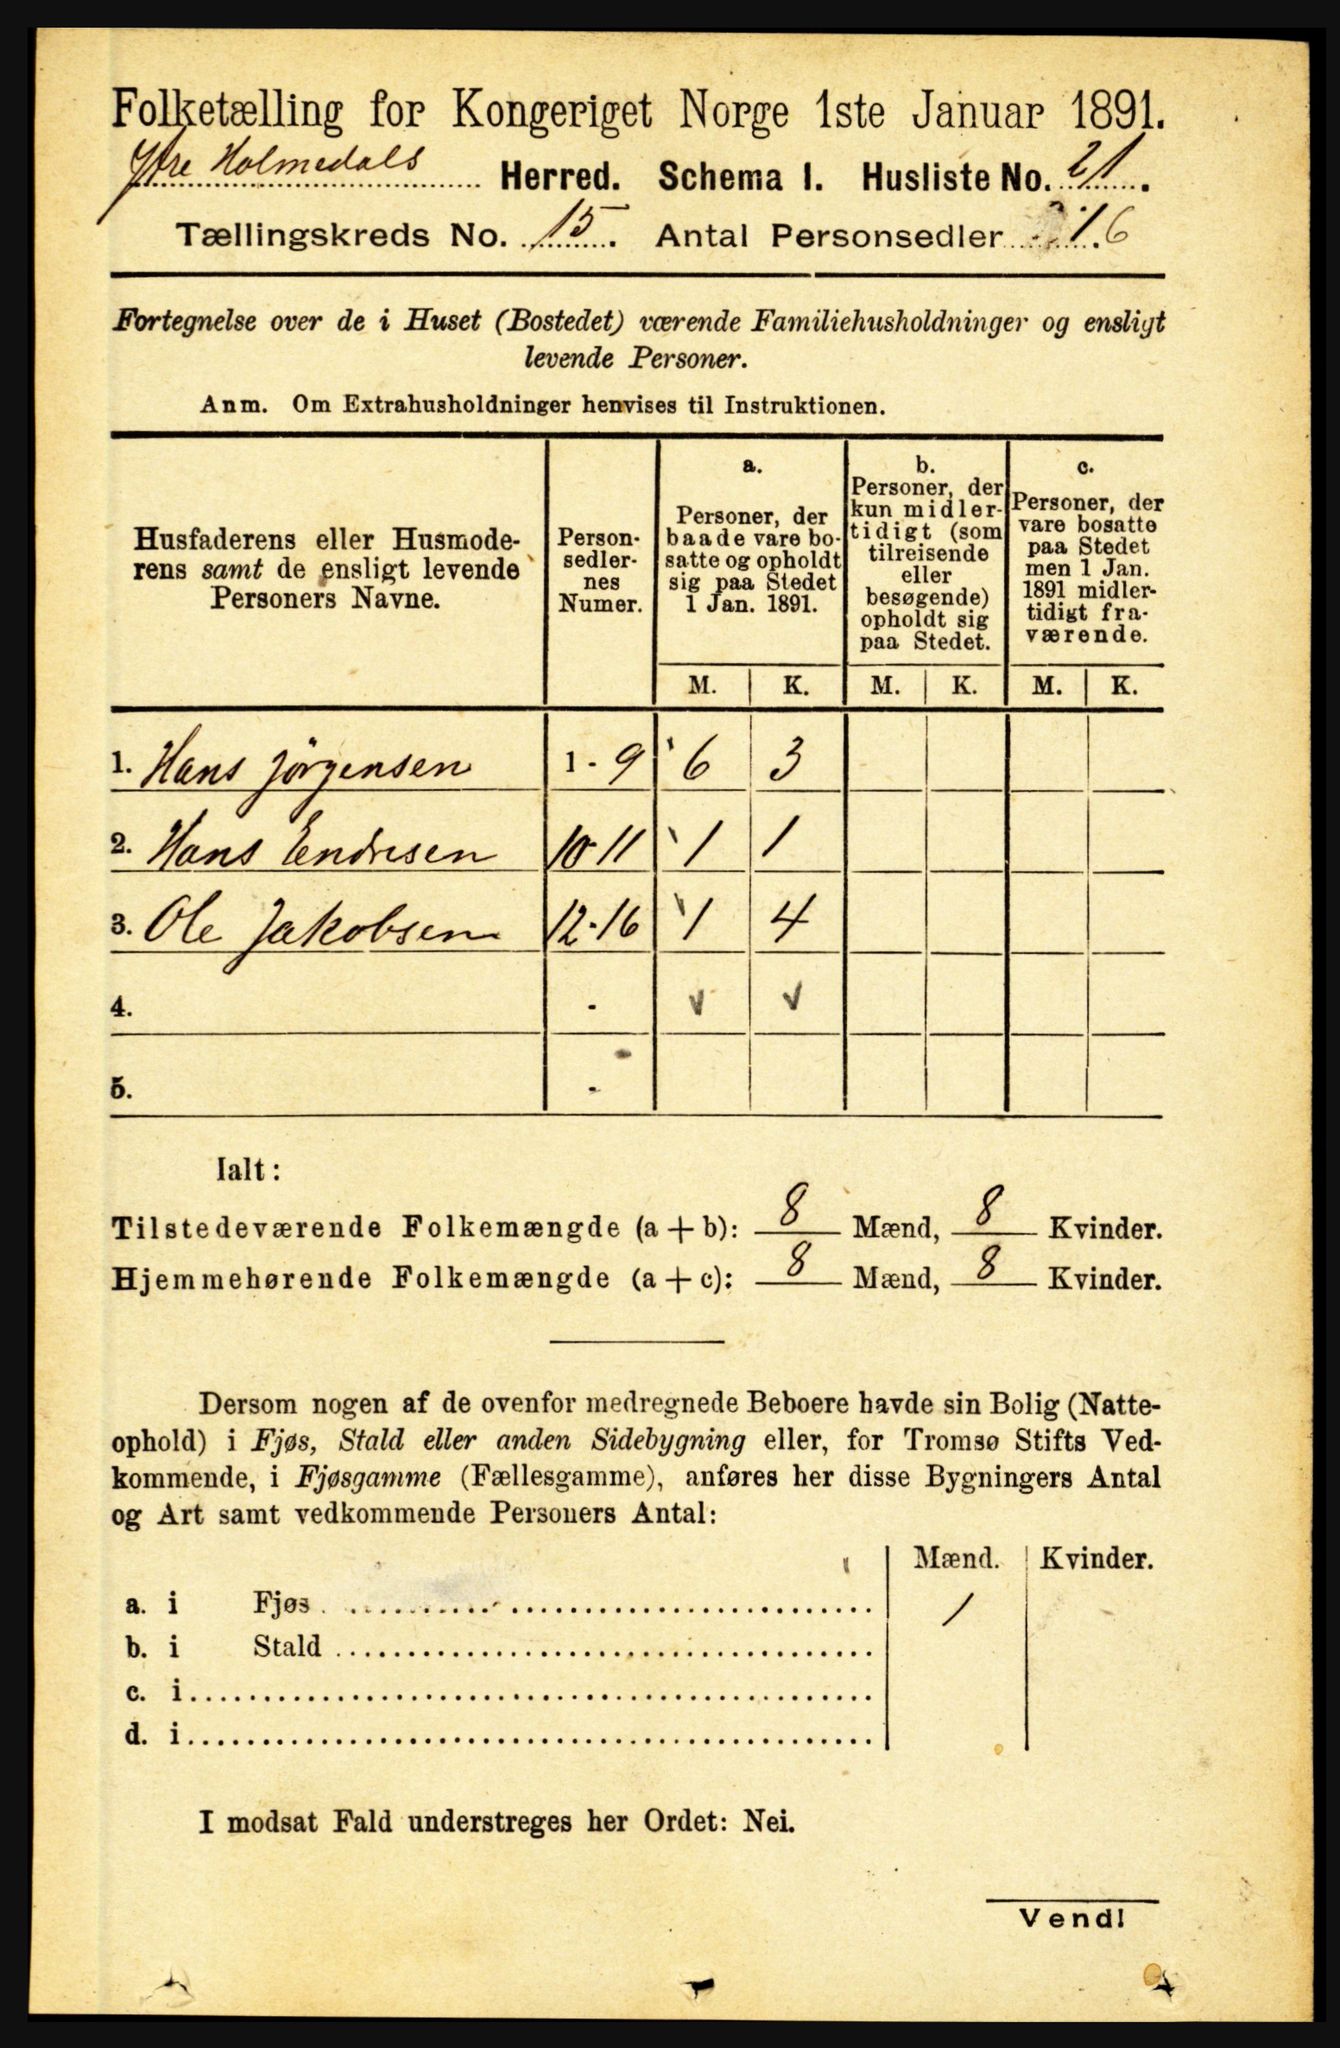 Folketælling for Kongeriget Norge 1ste Januar 1891.
Ytre Holmedals Herred. Schema I. Husliste No. 21.
Tællingskreds No. 15. Antal Personsedler 16.
Fortegnelse over de i Huset (Bostedet) værende Familiehusholdninger og ensligt
levende Personer.
Anm. Om Extrahusholdninger henvises til Instruktionen.
Husfaderens eller Husmode-
rens samt de ensligt levende
Personers Navne.
Person-
sedler-
nes
Numer.
a.
Personer, der
baade vare bo-
satte og opholdt
sig paa Stedet
1 Jan. 1891.
b.
Personer, der
kun midler-
tidigt (som
tilreisende
eller
besøgende)
opholdt sig
paa Stedet.
c.
Personer, der
vare bosatte
paa Stedet
men 1 Jan.
1891 midler-
tidigt fra-
værende.
M. K. M. K. M. K.
1. Hans Jørgensen 1 - 9 6 3
2. Hans Endresen 10-11 1 1
3. Ole Jakobsen 12-16 1 4
4. - v v
5. -
Ialt:
Tilstedeværende Folkemængde (a + b): 8 Mænd, 8 Kvinder.
Hjemmehørende Folkemængde (a + c): 8 Mænd, 8 Kvinder.
Dersom nogen af de ovenfor medregnede Beboere havde sin Bolig (Natte-
ophold) i Fjøs, Stald eller anden Sidebygning eller, for Tromsø Stifts Ved-
kommende, i Fjøsgamme (Fællesgamme), anføres her disse Bygningers Antal
og Art samt vedkommende Personers Antal:
Mænd. Kvinder.
a. i Fjøs 1
b. i Stald
c. i
d. i
I modsat Fald understreges her Ordet: Nei.
Vend!